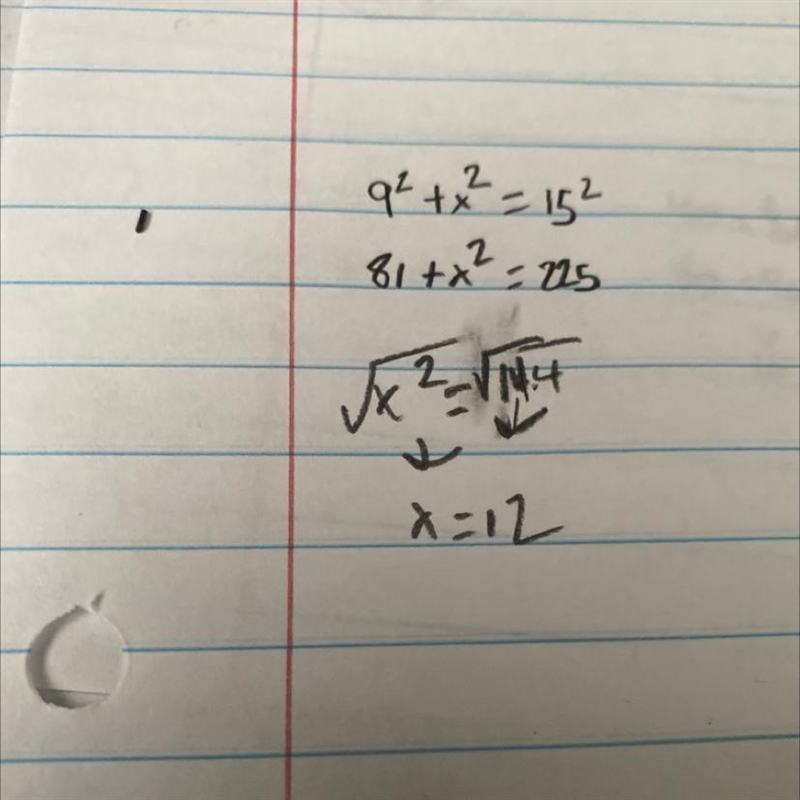 9² + x² = 15²
81 + x² = 225
√x² = √144
x = 12